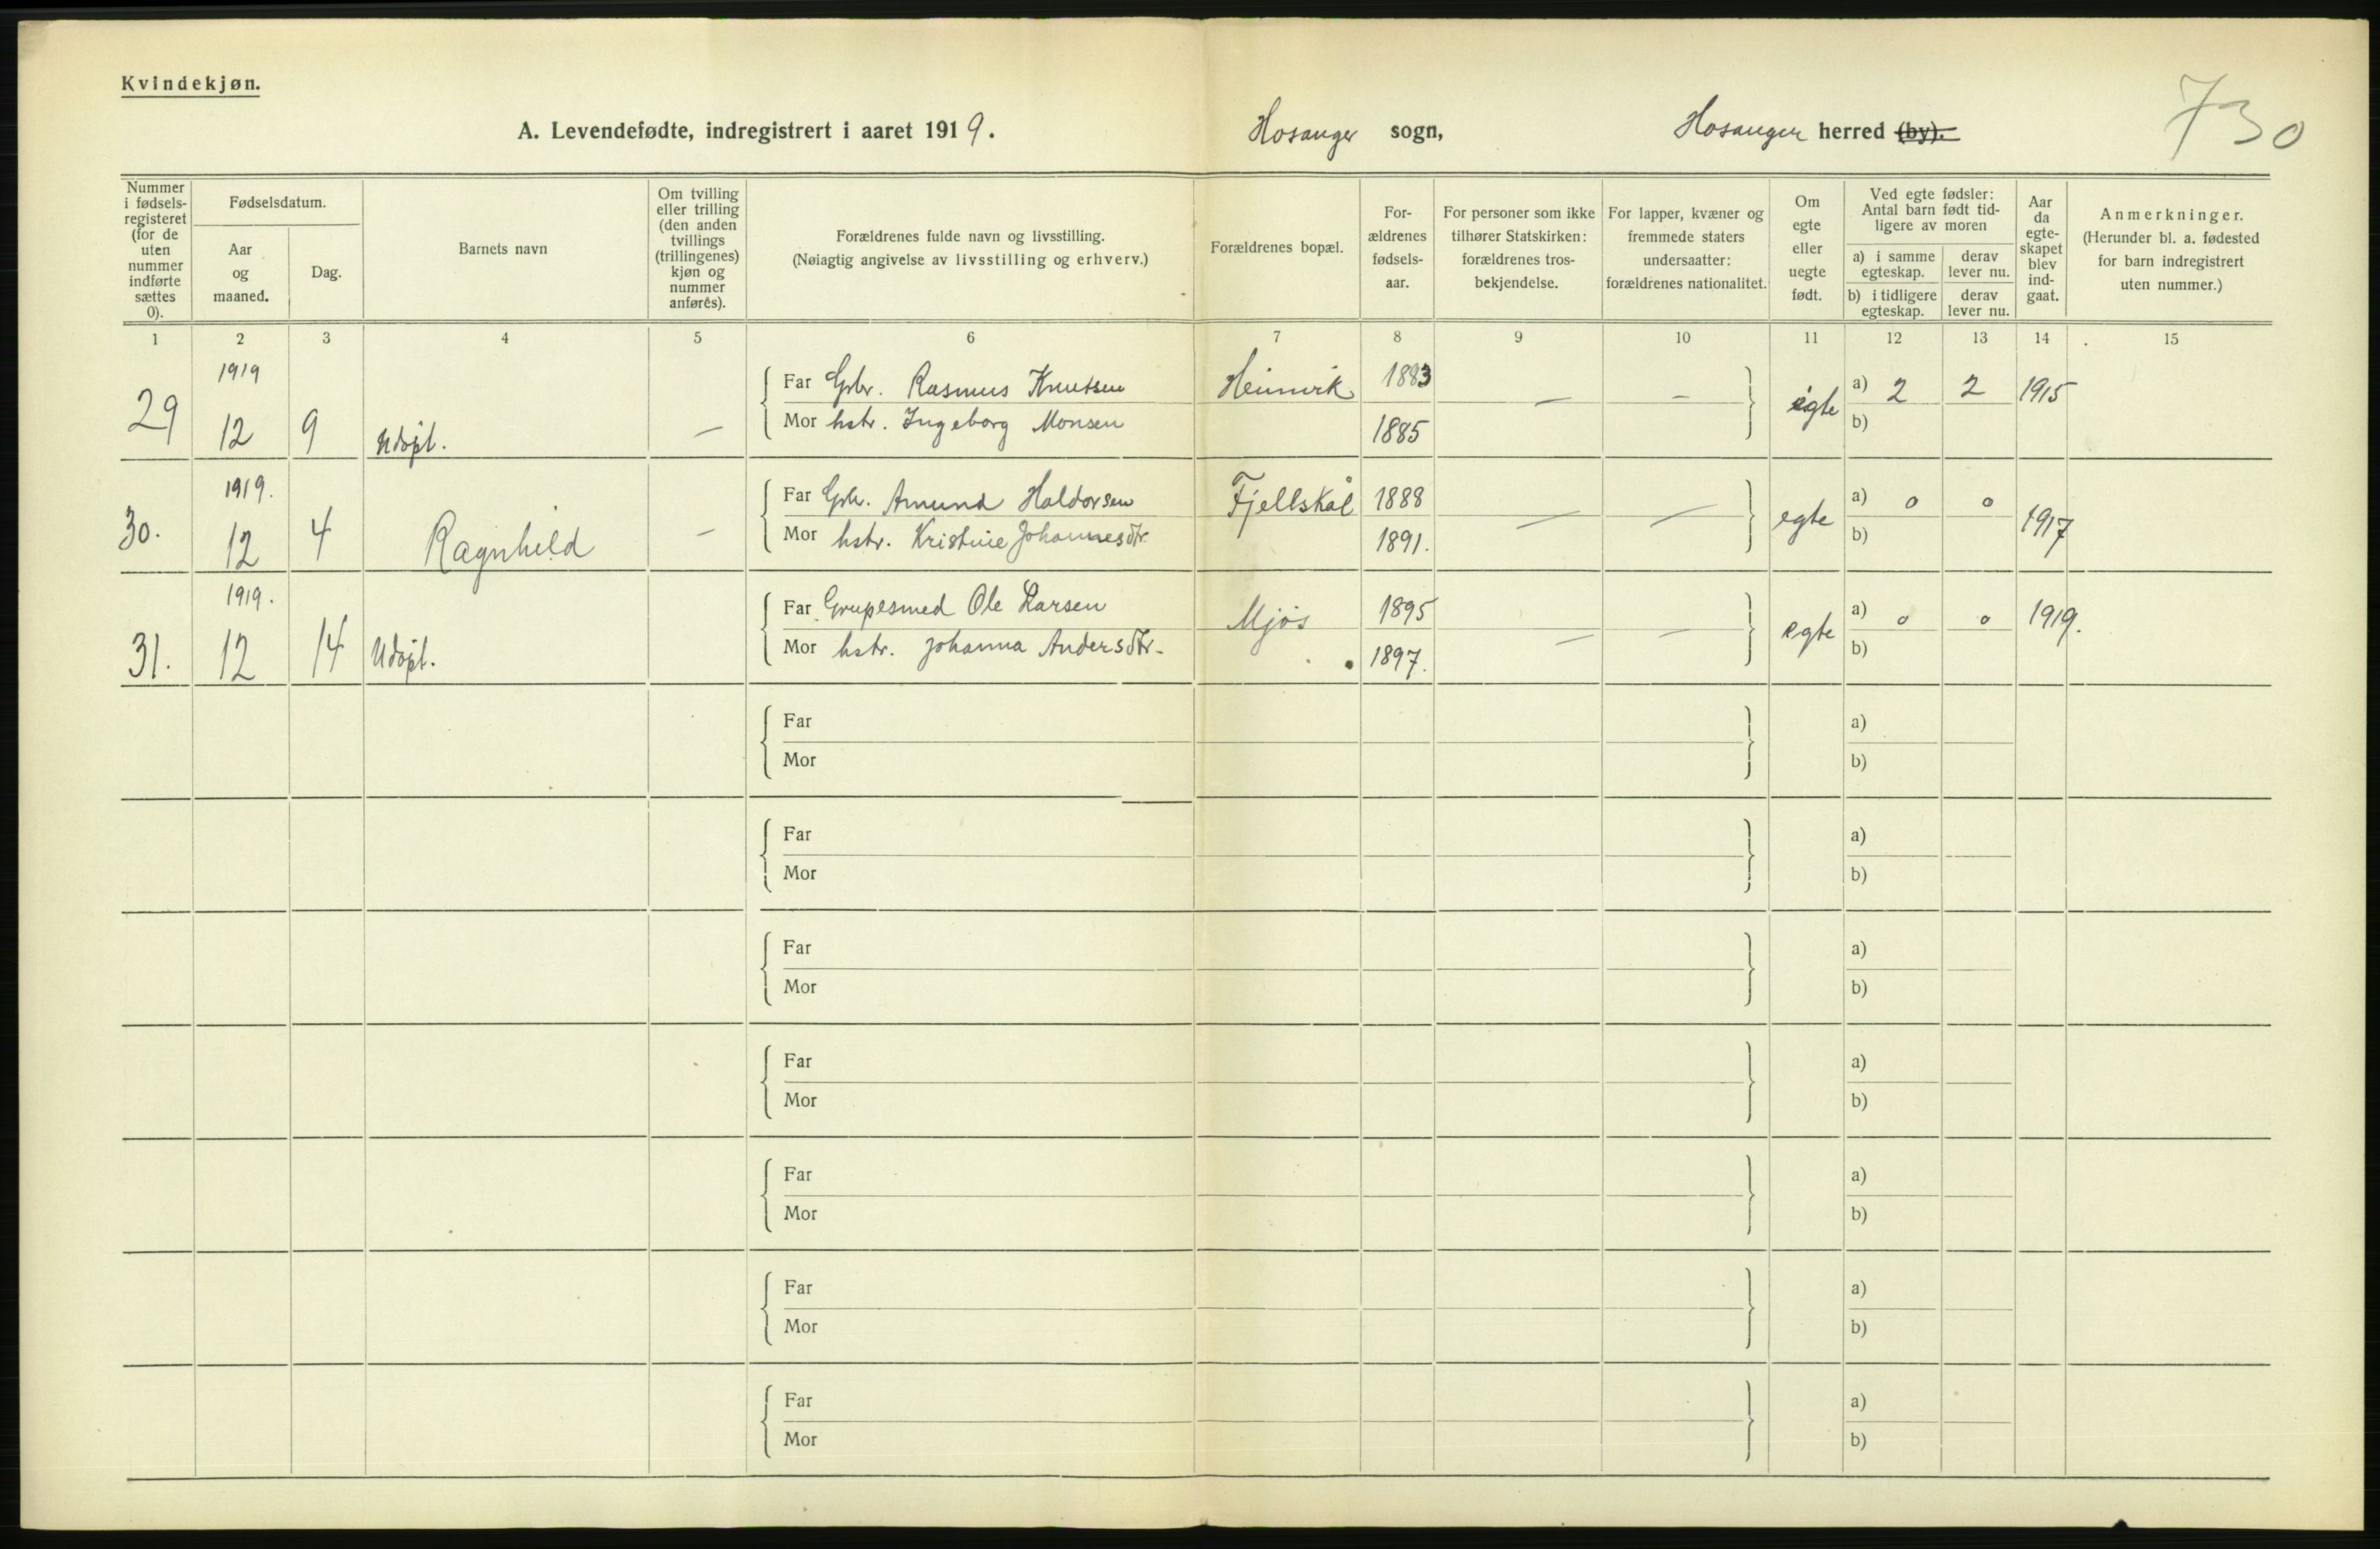 Kvindekjøn.
A. Levendefødte, indregistrert i aaret 1919. Hosanger sogn, Hosanger herred (by).
730
Nummer i fødselsregisteret (for de uten nummer indførte sættes 0).
Fødselsdatum.
Aar og maaned.
Dag.
Barnets navn
Om tvilling eller trilling (den anden tvillings (trillingenes) kjøn og nummer anføres).
Forældrenes fulde navn og livsstilling.
(Nøiagtig angivelse av livsstilling og erhverv.)
Forældrenes bopæl.
Forældrenes fødselsaar.
For personer som ikke tilhører Statskirken: forældrenes trosbekjendelse.
For lapper, kvæner og fremmede staters undersaatter: forældrenes nationalitet.
Om egte eller uegte født.
Ved egte fødsler: Antal barn født tidligere av moren
a) i samme egteskap.
derav lever nu.
b) i tidligere egteskap.
derav lever nu.
Aar da egteskapet blev indgaat.
Anmerkninger.
(Herunder bl. a. fødested for barn indregistrert uten nummer.)
1 2 3 4 5 6 7 8 9 10 11 12 13 14 15
1919
Far Gbr. Rasmus Knutsen Heimvik 1883 — — a) 2 2 1915
29 12 9 Udøpt. — Mor hstr. Ingeborg Monsen 1885 egte b)
1919.
Far Gbr. Amund Haldorsen Fjellskål 1888 — — a) 0 0 1917
30. 12 4 Ragnhild — Mor hstr. Kristine Johannesdtr. 1891. egte b)
1919.
Far Grupesmed Ole Larsen Mjøs 1895 — — a) 0 0 1919.
31. 12 14 Udøpt. Mor hstr. Johanna Andersdtr. 1897. egte b)
Far a)
Mor b)
Far a)
Mor b)
Far a)
Mor b)
Far a)
Mor b)
Far a)
Mor b)
Far a)
Mor b)
Far a)
Mor b)